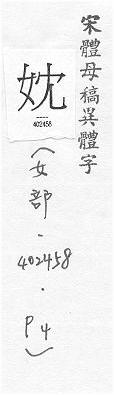 宋體母稿異體字
妉
402458
(女部-402458.P4)